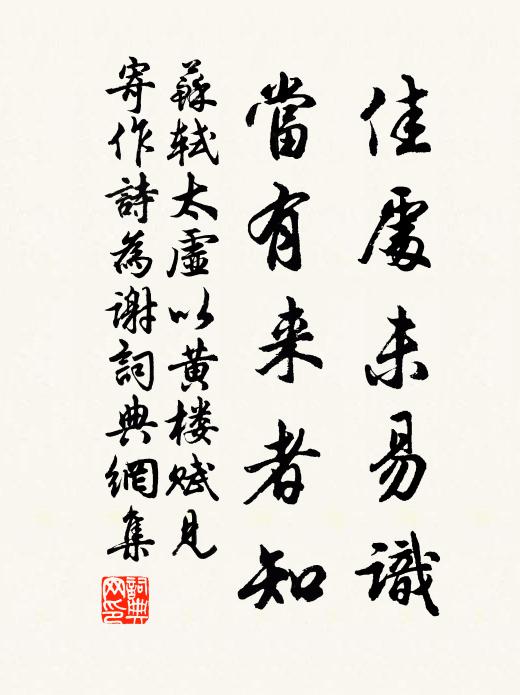 佳處未易識
當有来者知
蘇軾太虛以黄楼赋見
寄作詩為谢詞典網集
詞典网印